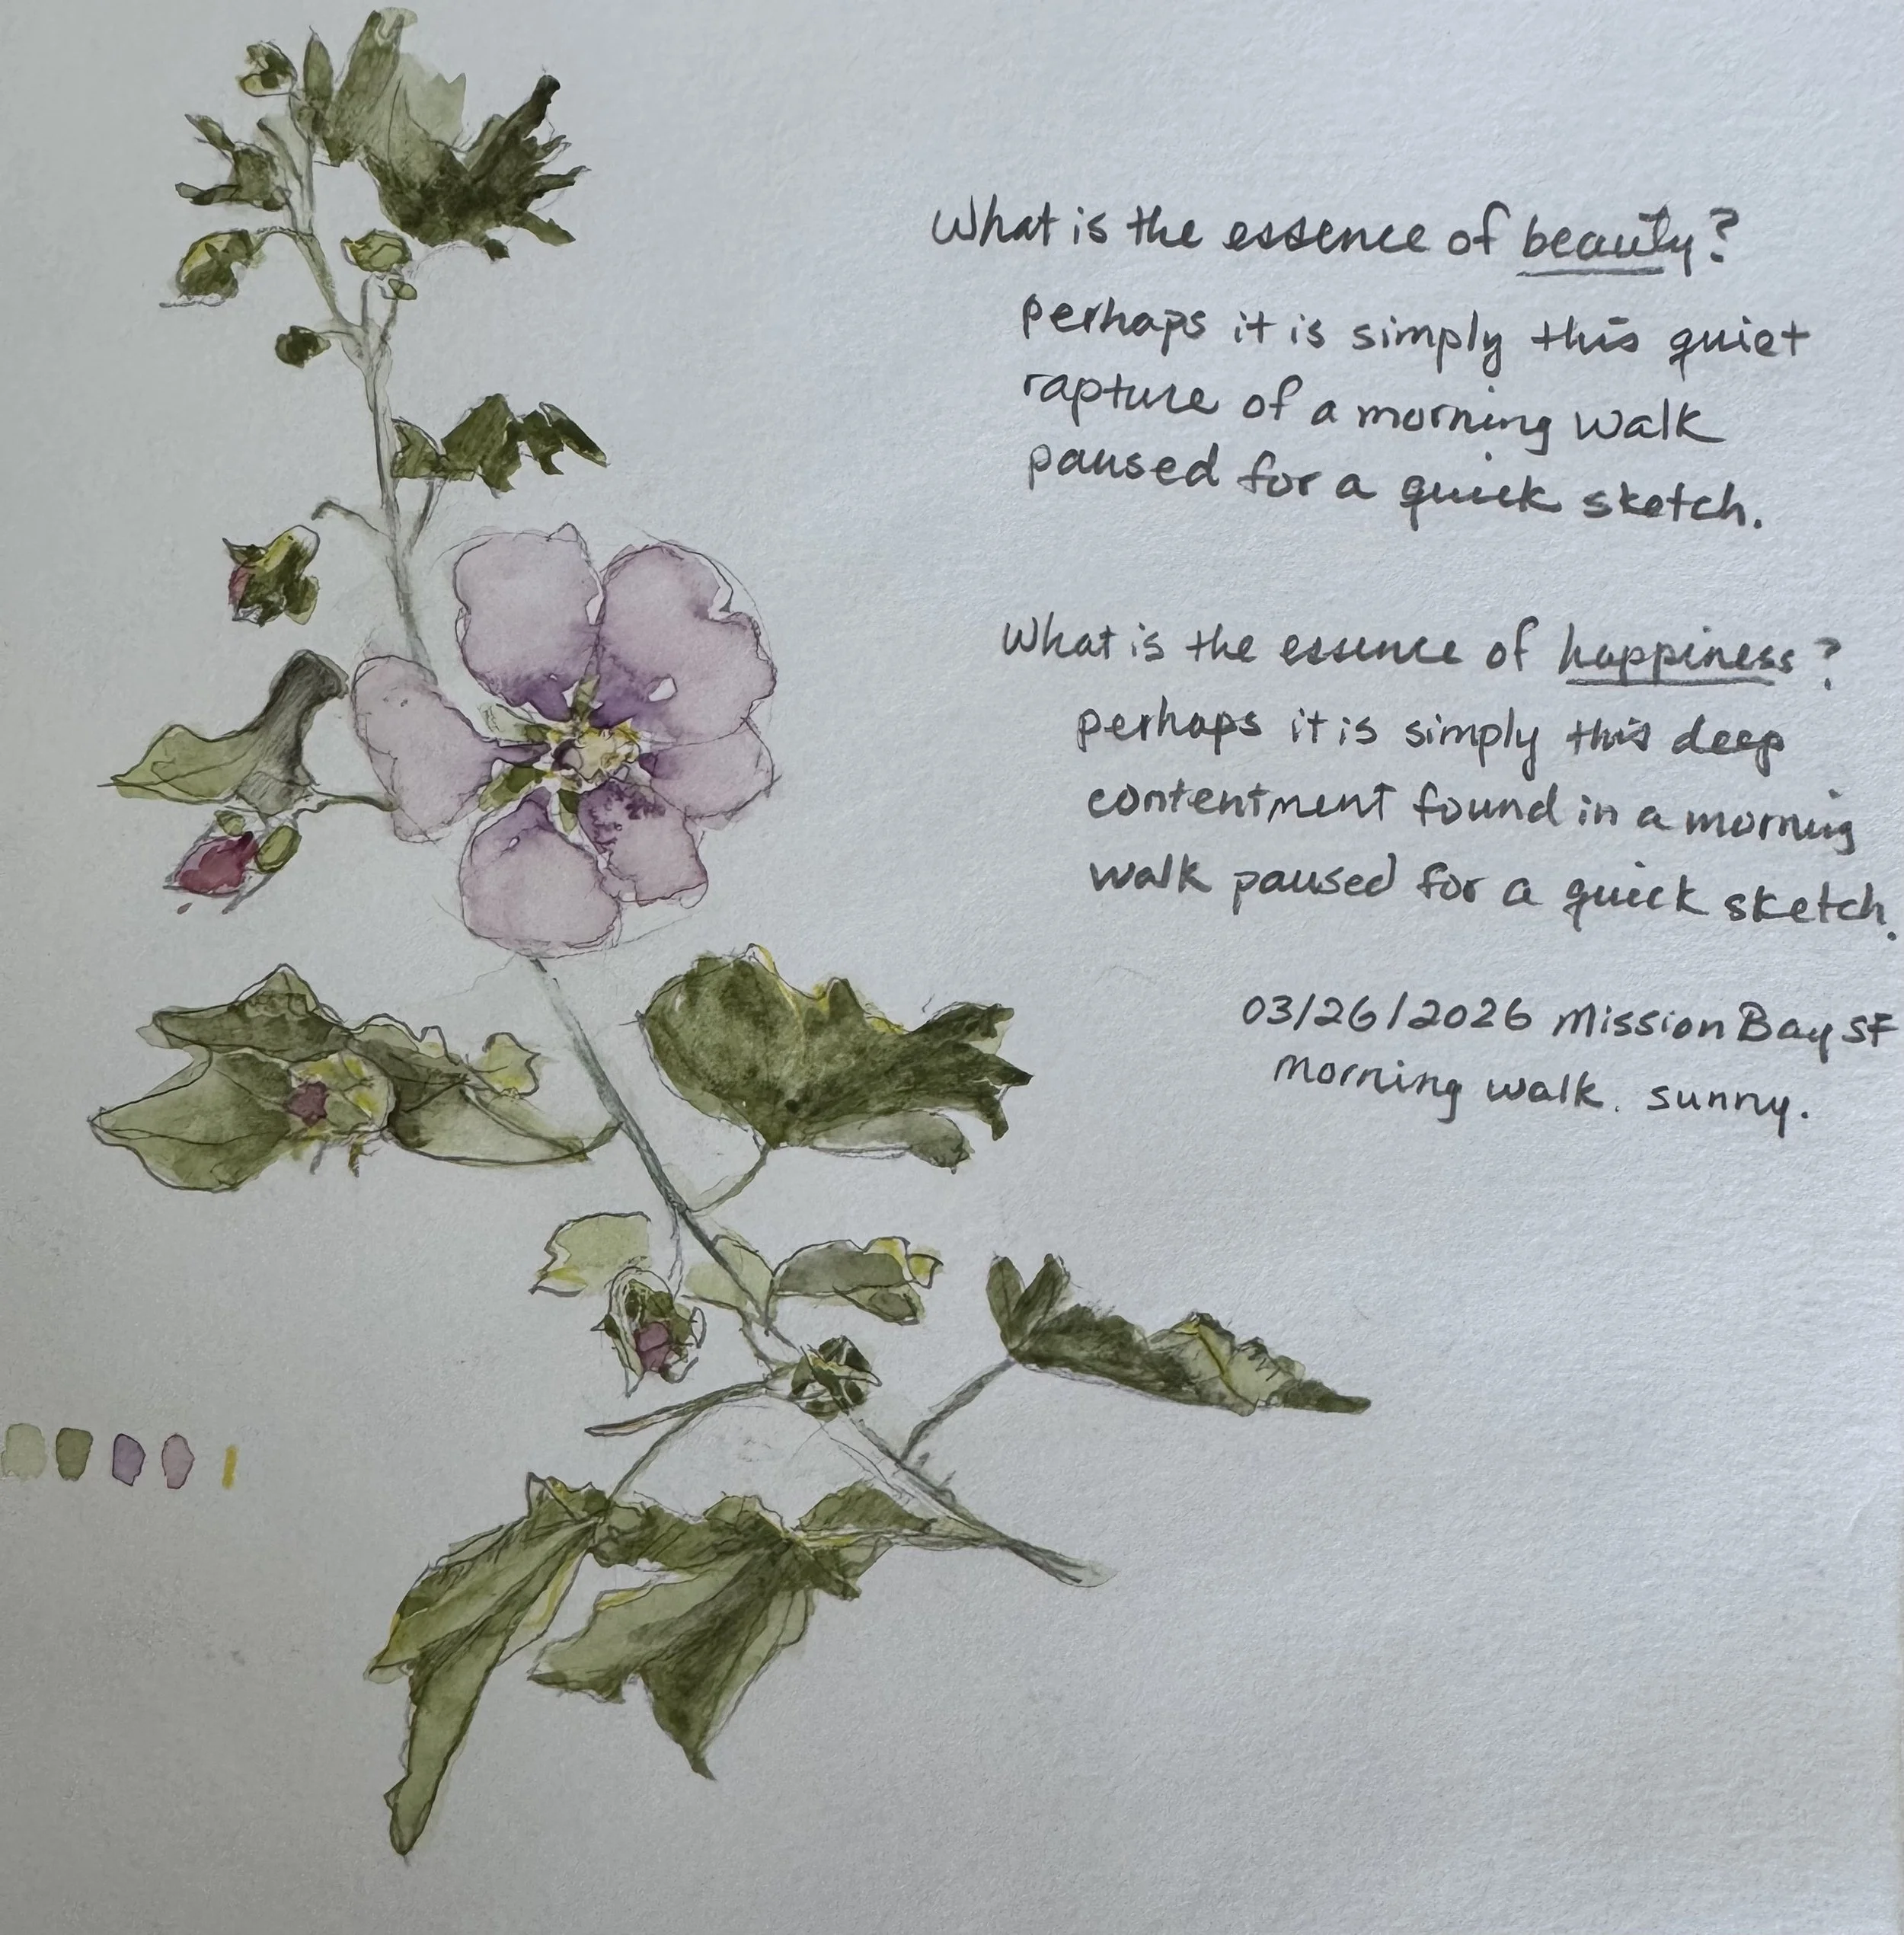 What is the essence of beauty?
perhaps it is simply this quiet
rapture of a morning walk
paused for a quick sketch.
What is the essence of happiness?
perhaps it is simply this deep
contentment found in a morning
walk paused for a quick sketch.
03/26/2026 Mission Bay SF
morning walk. sunny.